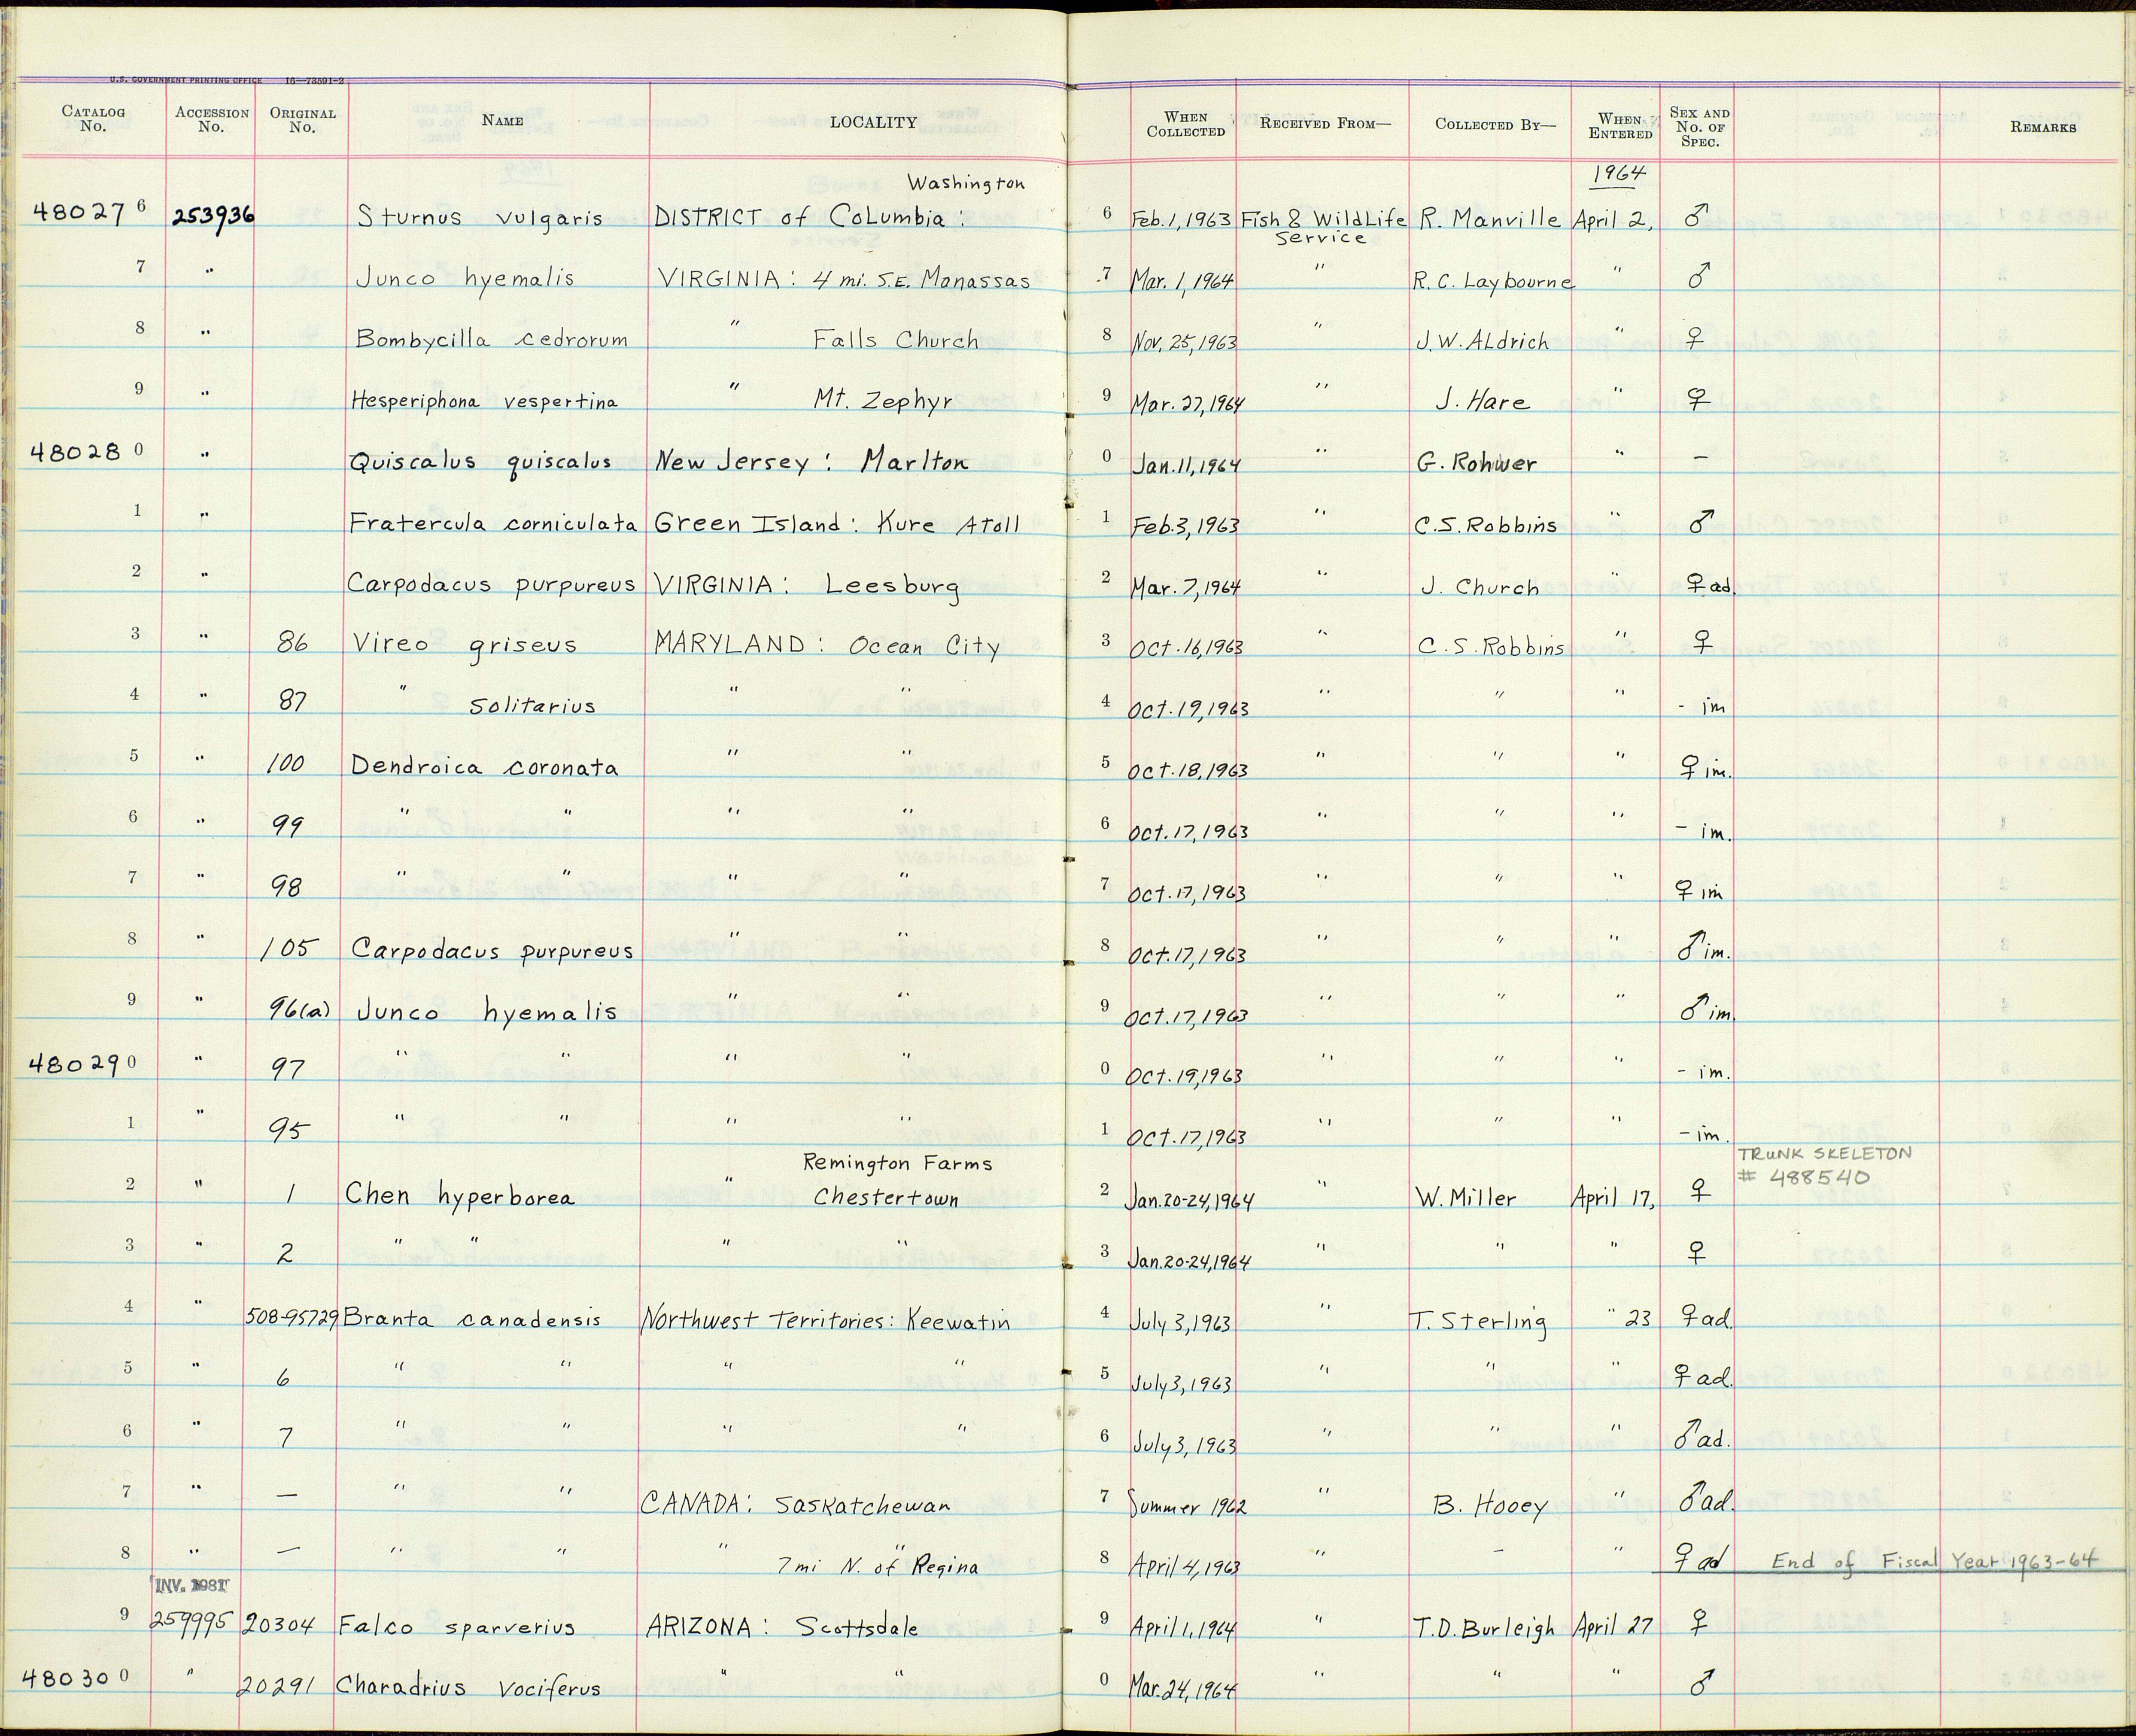 U.S. GOVERNMENT PRINTING OFFICE 16—73591-2
CATALOG No. ACCESSION No. ORIGINAL No. NAME LOCALITY WHEN COLLECTED RECEIVED FROM— COLLECTED BY— WHEN ENTERED SEX AND No. OF SPEC. REMARKS
Washington 1964
48027 6 253936 Sturnus vulgaris DISTRICT of Columbia : 6 Feb. 1, 1963 Fish & WildLife Service R. Manville April 2, ♂
7 " Junco hyemalis VIRGINIA : 4 mi. S.E. Manassas 7 Mar. 1, 1964 " R. C. Laybourne " ♂
8 " Bombycilla cedrorum " Falls Church 8 Nov. 25, 1963 " J. W. Aldrich " ♀
9 " Hesperiphona vespertina " Mt. Zephyr 9 Mar. 27, 1964 " J. Hare " ♀
48028 0 " Quiscalus quiscalus New Jersey : Marlton 0 Jan. 11, 1964 " G. Rohwer " –
1 " Fratercula corniculata Green Island : Kure Atoll 1 Feb. 3, 1963 " C. S. Robbins " ♂
2 " Carpodacus purpureus VIRGINIA : Leesburg 2 Mar. 7, 1964 " J. Church " ♀ ad.
3 " 86 Vireo griseus MARYLAND : Ocean City 3 Oct. 16, 1963 " C. S. Robbins " ♀
4 " 87 " solitarius " " 4 Oct. 19, 1963 " " " - im
5 " 100 Dendroica coronata " " 5 Oct. 18, 1963 " " " ♀ im.
6 " 99 " " " " 6 Oct. 17, 1963 " " " – im.
7 " 98 " " " " 7 Oct. 17, 1963 " " " ♀ im
8 " 105 Carpodacus purpureus " " 8 Oct. 17, 1963 " " " ♂ im.
9 " 96(a) Junco hyemalis " " 9 Oct. 17, 1963 " " " ♂ im.
48029 0 " 97 " " " " 0 Oct. 19, 1963 " " " - im.
1 " 95 " " " " 1 Oct. 17, 1963 " " " – im.
Remington Farms TRUNK SKELETON # 488540
2 " 1 Chen hyperborea " Chestertown 2 Jan. 20-24, 1964 " W. Miller April 17, ♀
3 " 2 " " " " 3 Jan. 20-24, 1964 " " " ♀
4 " 508-95729 Branta canadensis Northwest Territories : Keewatin 4 July 3, 1963 " T. Sterling " 23 ♀ ad.
5 " 6 " " " " 5 July 3, 1963 " " " ♀ ad.
6 " 7 " " " " 6 July 3, 1963 " " " ♂ ad.
7 " — " " CANADA : Saskatchewan 7 Summer 1962 " B. Hooey " ♂ ad.
8 " — " " " " 7 mi N. of Regina 8 April 4, 1963 " – " ♀ ad End of Fiscal Year 1963-64
INV. 1981
9 259995 20304 Falco sparverius ARIZONA : Scottsdale 9 April 1, 1964 " T. D. Burleigh April 27 ♀
48030 0 " 20291 Charadrius vociferus " " 0 Mar. 24, 1964 " " " ♂